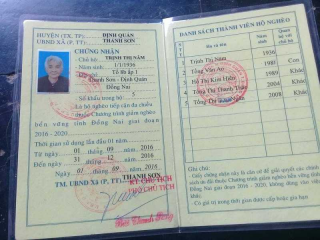 HUYỆN (TX, TP): ĐỊNH QUÁN
UBND XÃ (P, TT): THANH SƠN
CHỨNG NHẬN
Chủ hộ: TRỊNH THỊ NĂM
Năm sinh: 1/1/1936
Tổ 8b ấp 1
Thanh Sơn - Định Quán
Đồng Nai
Số khẩu trong hộ:
Là hộ nghèo tiếp cận đa chiều
thuộc Chương trình giảm nghèo
bền vững tỉnh Đồng Nai giai đoạn
2016 - 2020.
Thời gian sử dụng lần đầu (năm):
Từ ngày 01 tháng 09 năm 2016
Đến ngày 31 tháng 12 năm 2016
Ngày 01 tháng 09 năm 2016
TM. UBND XÃ (P, TT) THANH SƠN
KT. CHỦ TỊCH
PHÓ CHỦ TỊCH
DANH SÁCH THÀNH VIÊN HỘ NGHÈO
Họ và tên
Năm sinh
Quan hệ với chủ hộ
1 Trịnh Thị Năm 1936
2 Tống Văn An 1980 Con
3 Hồ Thị Kim Hiền 1989 Khác
4 Tống Thị Thanh Thảo 2004 Khác
5 Tống Thị 2008 Khác
Ghi chú: